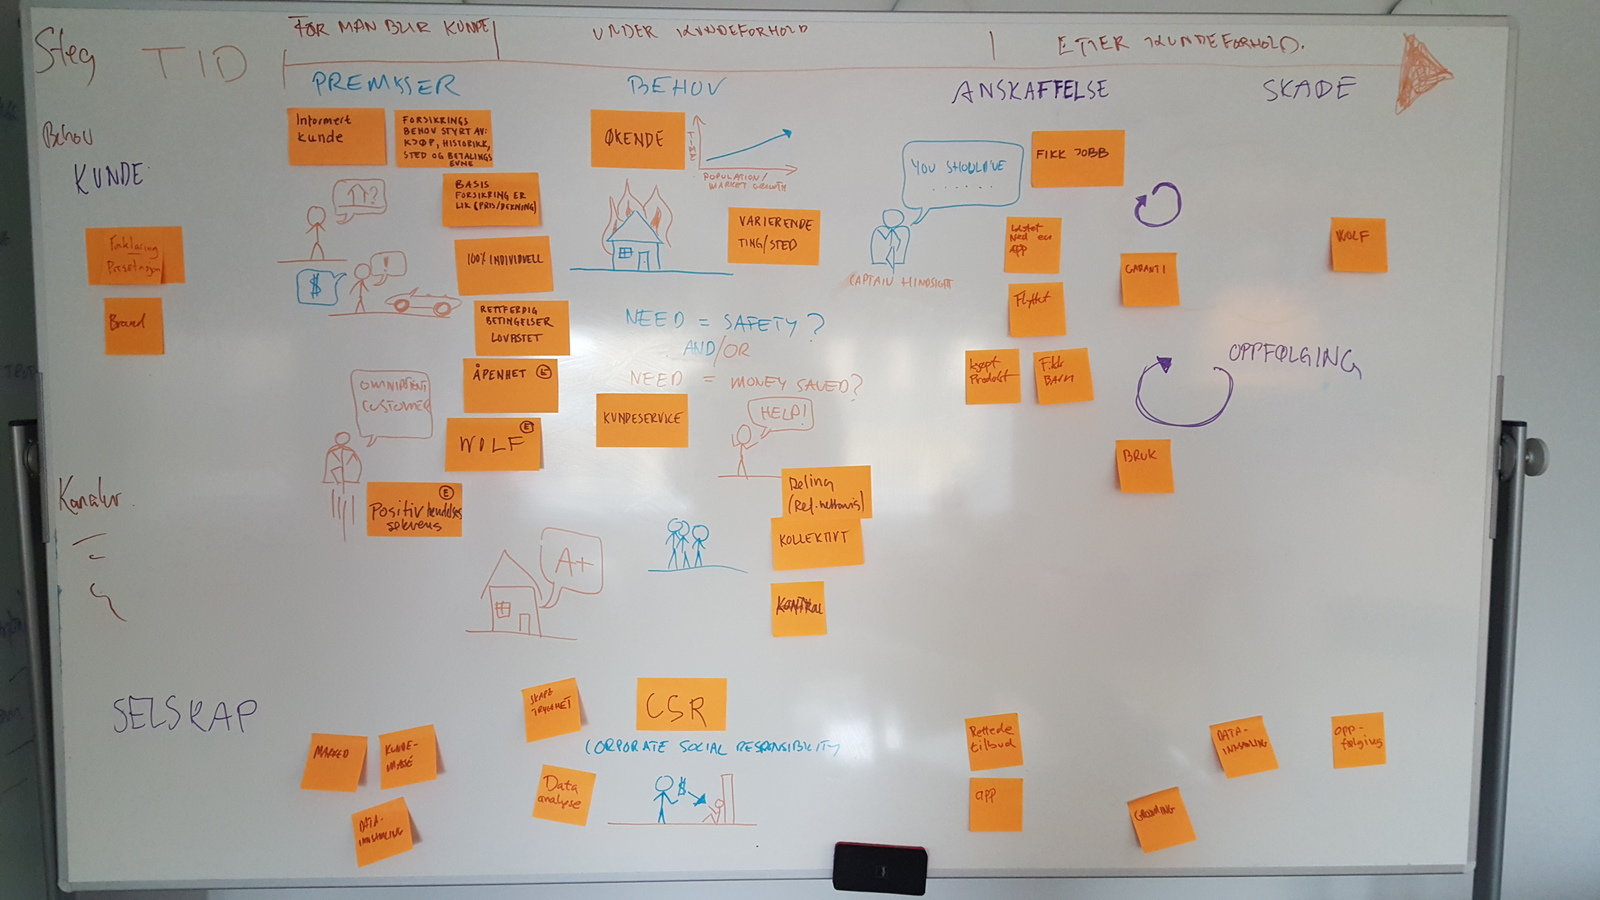 Steg
TID
FØR MAN BLIR KUNDE
UNDER KUNDEFORHOLD
ETTER KUNDEFORHOLD.
PREMISSER
BEHOV
ANSKAFFELSE
SKADE
Behov
KUNDE:
Forklaring
Brand
Informert
kunde
FORSIKRINGS
BEHOV STYRT AV:
KJØP, HISTORIKK,
STED OG BETALINGS
EVNE
BASIS
FORSIKRING ER
LIK (PRIS/DEKNING)
↑↑?
$
!
100% INDIVIDUELL
RETTFERDIG
BETINGELSER
LOVBSTET
ÅPENHET E
OMNIPOTENT
CUSTOMER
WOLF E
Positiv hendelses
E
A+
ØKENDE
TIME
POPULATION/
MARKET GROWTH
VARIERENDE
TING/STED
NEED = SAFETY?
AND/OR
NEED = MONEY SAVED?
KUNDESERVICE
HELP!
Deling
KOLLEKTIVT
KONTROL
YOU SHOULD'VE
......
CAPTAIN HINDSIGHT
FIKK JOBB
Lastet
Ned en
APP
Flyttet
kjøpt
Produkt
Fikk
BARN
GARANTI
BRUK
OPPFØLGING
WOLF
Kanaler.
SELSKAP
MARKED
KUNDE-
MASSE
DATA-
INNSAMLING
SKAPE
TRYGGHET
Data
analyse
CSR
CORPORATE SOCIAL RESPONSIBILITY
$
Rettede
tilbud
app
DATA-
INNSAMLING
OPP-
følging